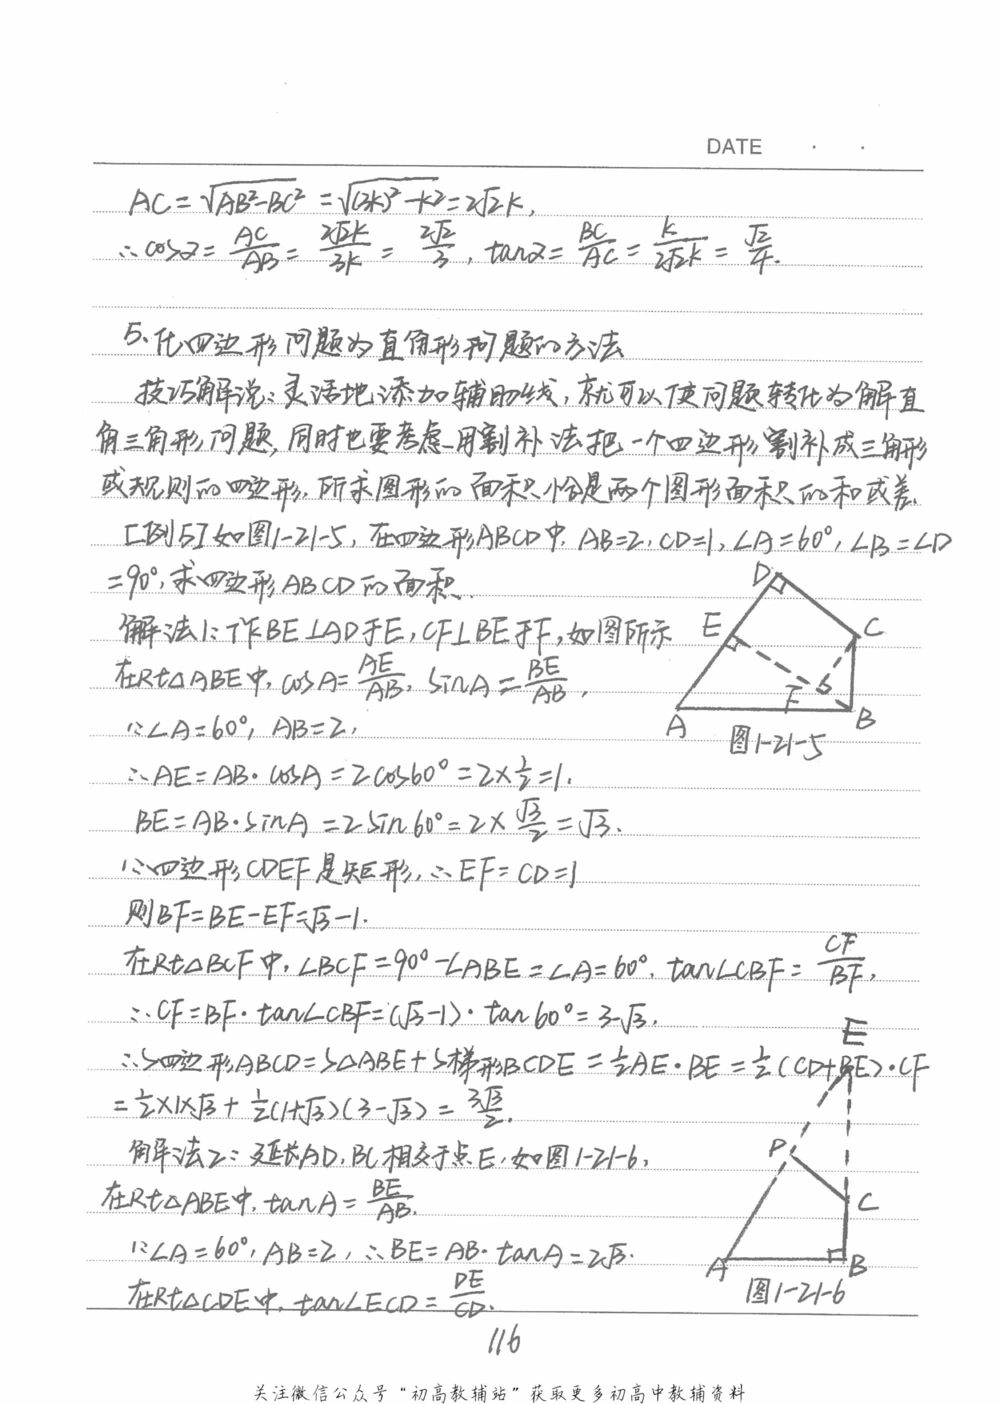 DATE · ·
AC=√AB²-BC² =√(3k)²-k²=2√2k,
∴cosα=AC/AB=2√2k/3k=2√2/3, tanα=BC/AC=k/2√2k=√2/4.
5.化四边形问题为直角形问题的方法
技巧解说:灵活地添加辅助线,就可以使问题转化为解直
角三角形问题,同时也要考虑用割补法把一个四边形割补成三角形
或规则的四边形,所求图形的面积恰是两个图形面积的和或差.
[例5]如图1-21-5,在四边形ABCD中,AB=2,CD=1,∠A=60°,∠B=∠D
=90°,求四边形ABCD的面积.
解法1:作BE⊥AD于E,CF⊥BE于F,如图所示
在Rt△ABE中,cosA=AE/AB,sinA=BE/AB,
∵∠A=60°,AB=2,
∴AE=AB·cosA=2cos60°=2×1/2=1.
BE=AB·sinA=2sin60°=2×√3/2=√3.
∵四边形CDEF是矩形,∴EF=CD=1
则BF=BE-EF=√3-1.
在Rt△BCF中,∠BCF=90°-∠ABE=∠A=60°,tan∠CBF=CF/BF,
∴CF=BF·tan∠CBF=(√3-1)·tan60°=3-√3.
∴S四边形ABCD=S△ABE+S梯形BCDE=1/2AE·BE=1/2(CD+BE)·CF
=1/2×1×√3+1/2(1+√3)(3-√3)=3√3/2.
解法2:延长AD,BC相交于点E,如图1-21-6,
在Rt△ABE中,tanA=BE/AB.
∵∠A=60°,AB=2,∴BE=AB·tanA=2√3.
在Rt△CDE中,tan∠ECD=DE/CD.
D
E
C
F
A
B
图1-21-5
E
D
C
A
B
图1-21-6
116
关注微信公众号“初高教辅站”获取更多初高中教辅资料